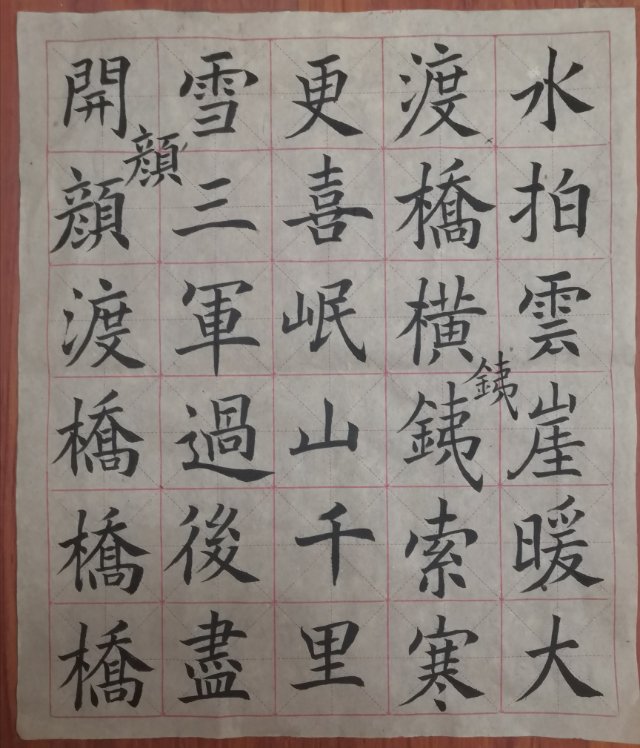 水拍雲崖暖大
渡橋橫銕索寒
銕
更喜岷山千里
雪三軍過後盡
顔
開顔渡橋橋橋